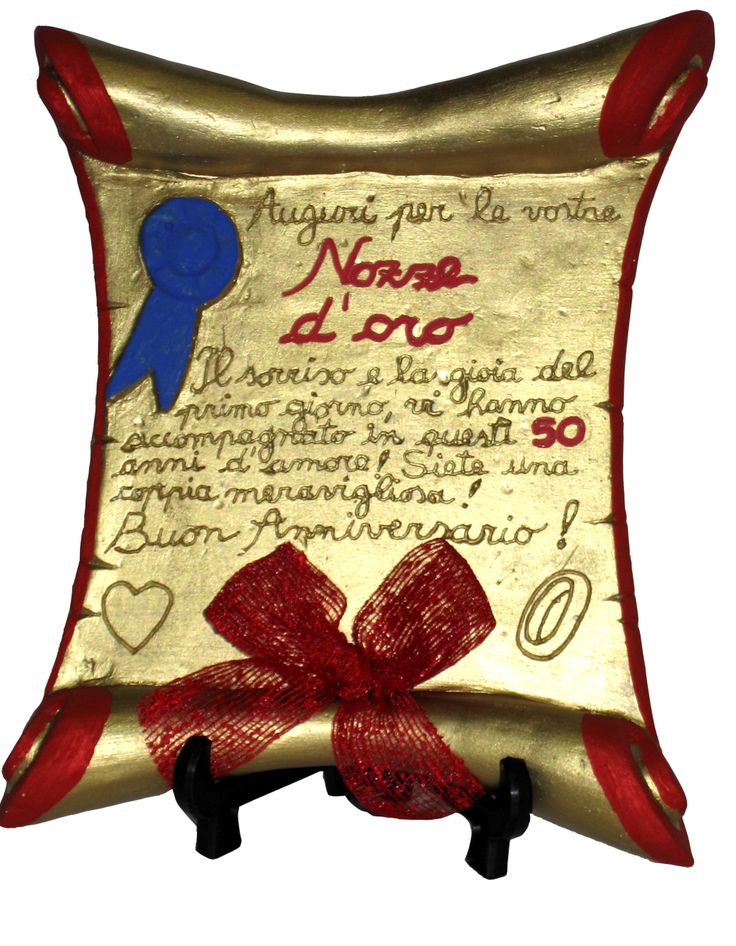 Auguri per la vostre
Nozze
d'oro
Il sorriso e la gioia del
primo giorno, vi hanno
accompagnato in questi 50
anni d'amore! Siete una
coppia meravigliosa!
Buon Anniversario!